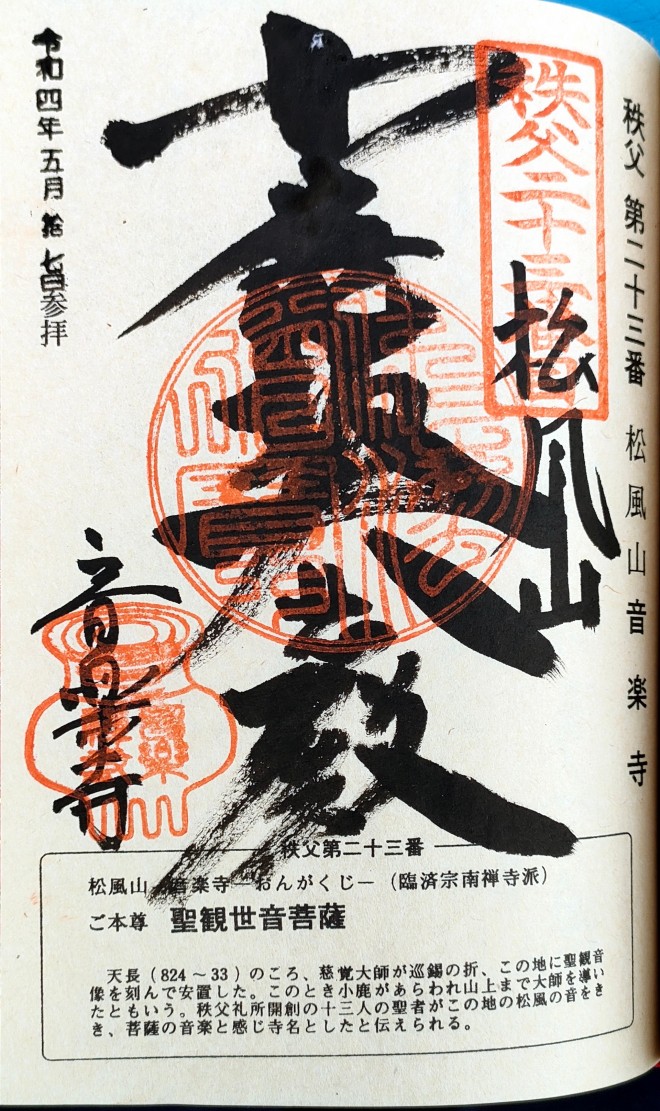 秩父 第二十三番 松風山 音楽寺
秩父二十三番
松風山
殿
音楽寺
令和四年五月拾七日参拝
秩父第二十三番
松風山 音楽寺－おんがくじ－(臨済宗南禅寺派)
ご本尊 聖観世音菩薩
天長(824～33)のころ、慈覚大師が巡錫の折、この地に聖観音
像を刻んで安置した。このとき小鹿があらわれ山上まで大師を導い
たともいう。秩父札所開創の十三人の聖者がこの地の松風の音をき
き、菩薩の音楽と感じ寺名としたと伝えられる。